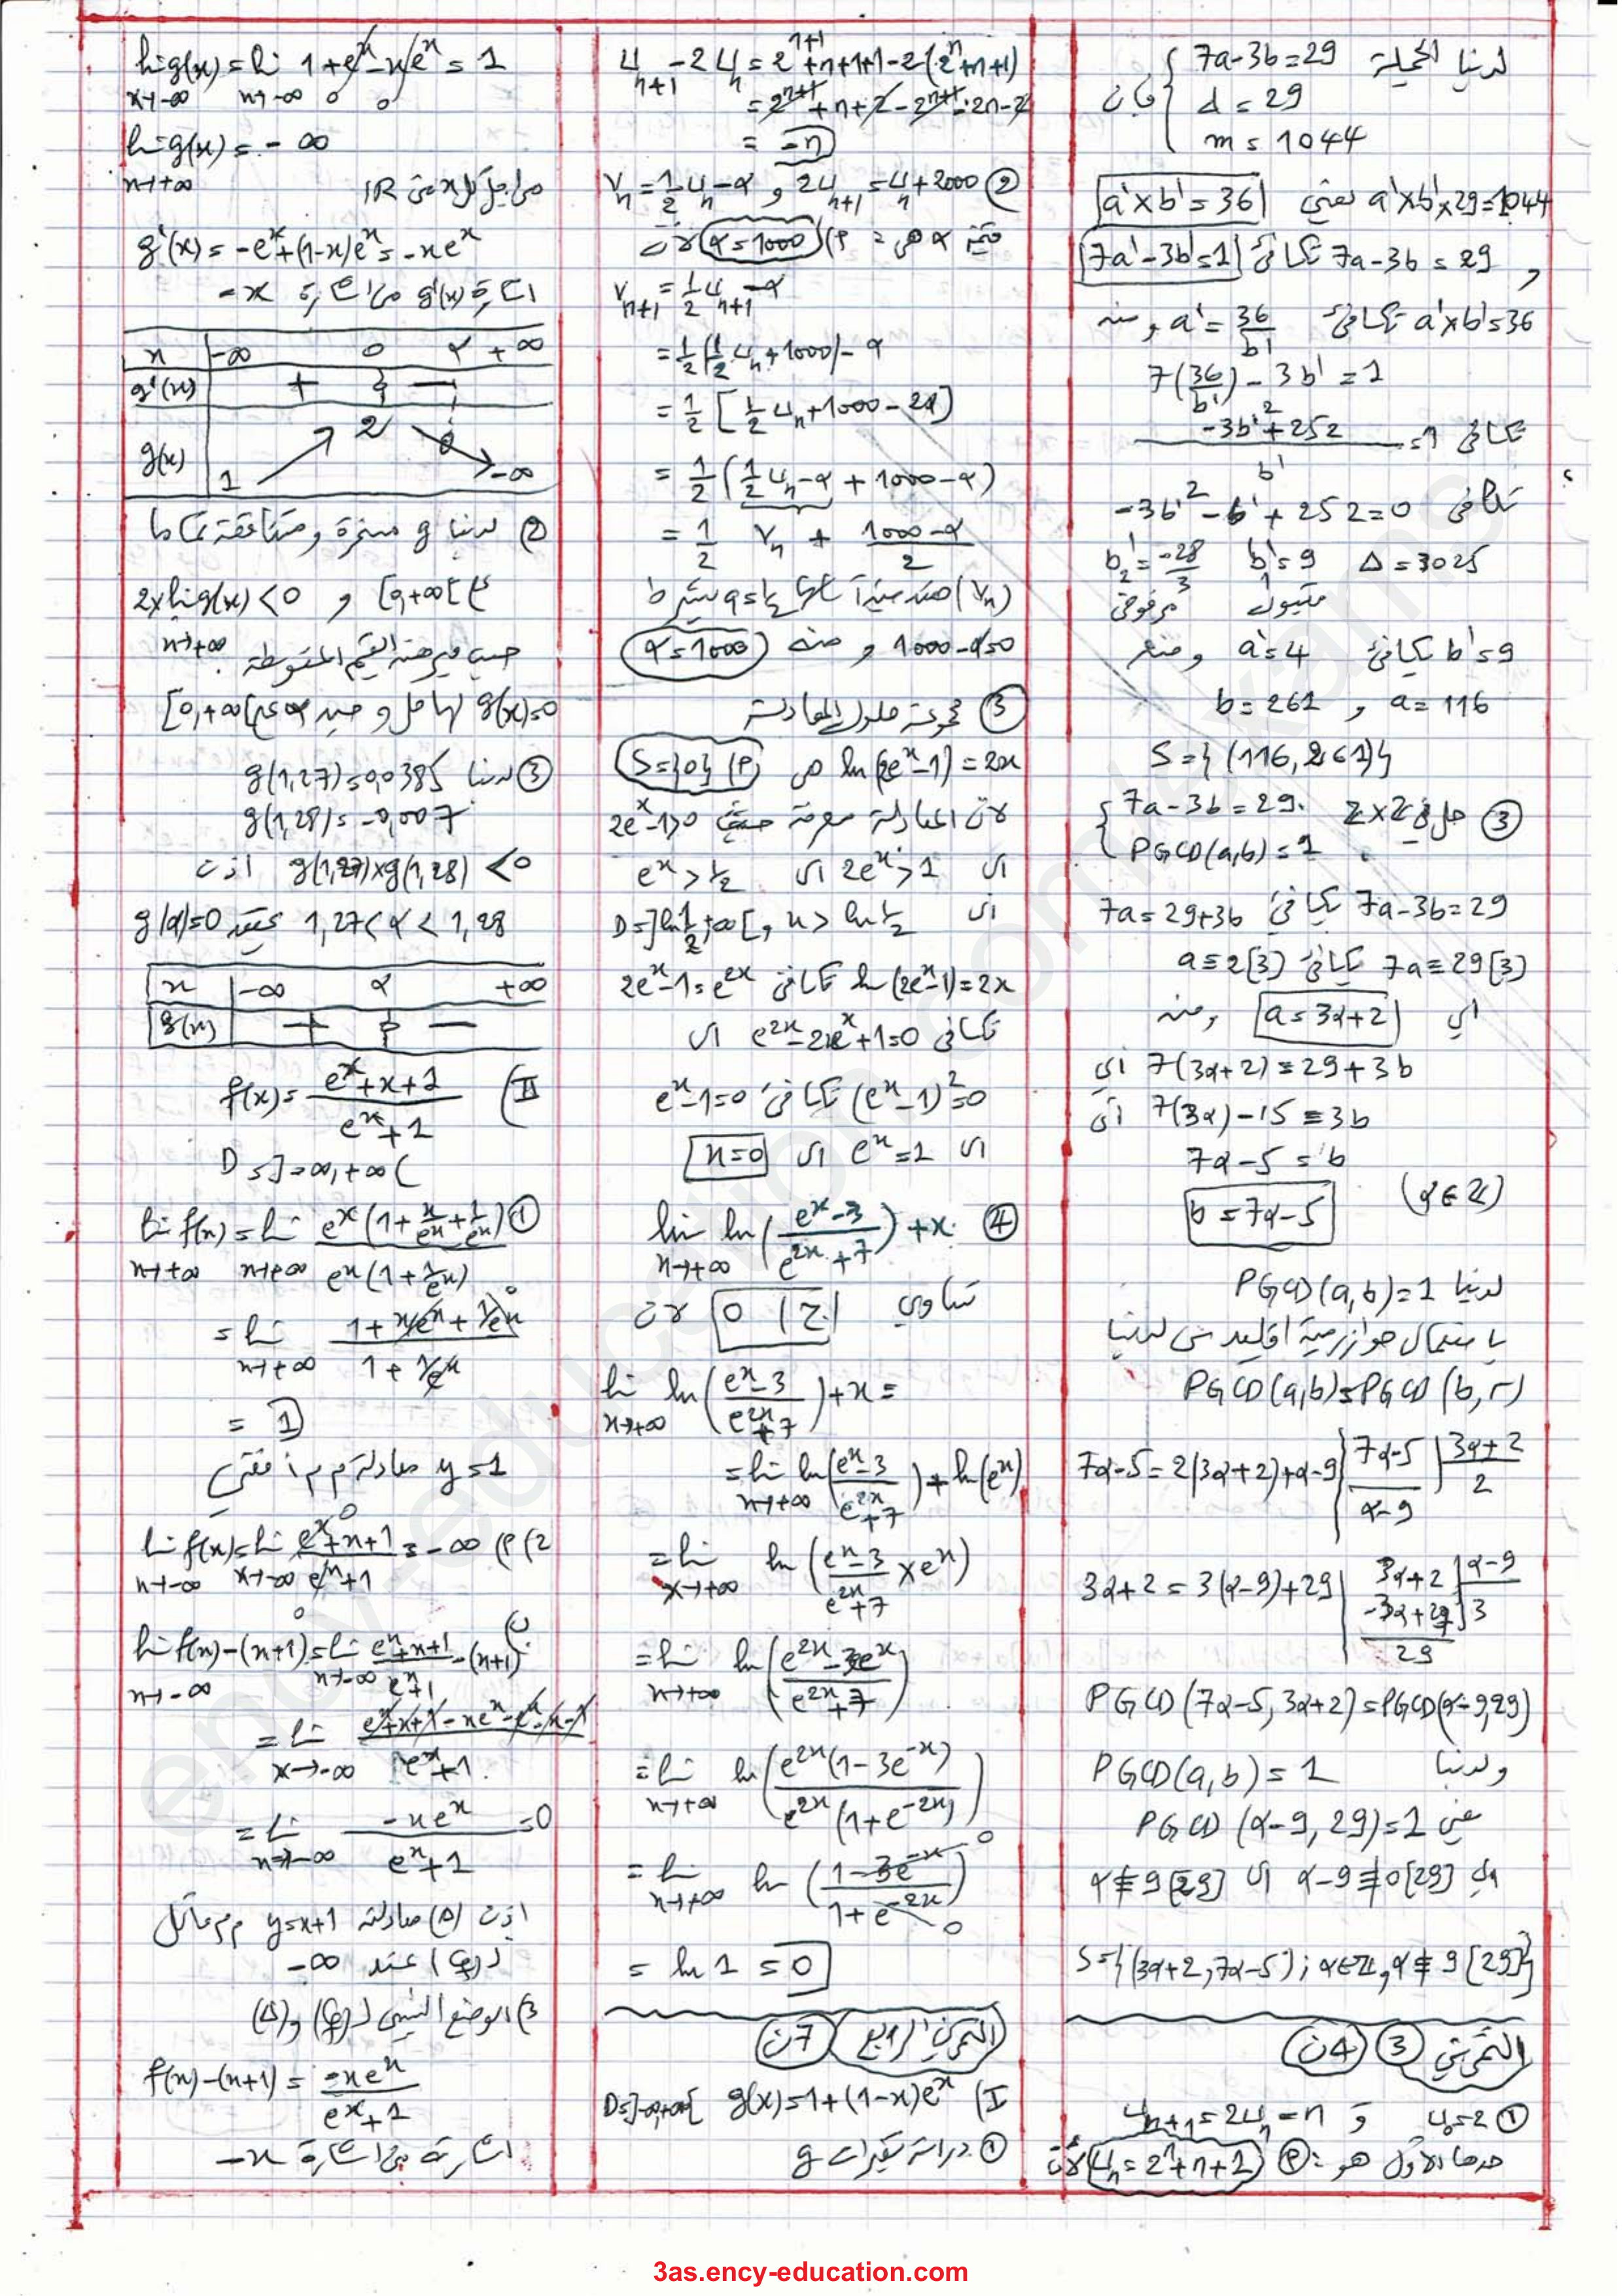 لدينا الجملة { 7a-3b=29
d = 29 فإن
m = 1044
a'×b'×29=1044 تعني a'×b'=36
و 7a-3b = 29 تكافئ 7a'-3b'=1
a'×b'=36 تكافئ a'= 36/b' ومنه
7(36/b') - 3b' = 1
تكافئ (-3b'²+252)/b' = 1
تكافئ -3b'² - b' + 252=0
Δ = 3025 b'₁=9 b'₂=-28/3
مقبول مرفوض
b'=9 تكافئ a'=4 ومنه
a= 116 و b= 261
S={(116, 261)}
③ حل في Z×Z { 7a-3b=29.
PGCD(a,b)=1
7a-3b=29 تكافئ 7a=29+3b
7a≡29[3] تكافئ a≡2[3]
اي a=3α+2 ومنه
7(3α+2)=29+3b اي
7(3α)-15=3b أي
7α-5=b
b=7α-5 (α∈Z)
لدينا PGCD(a,b)=1
باستعمال خوارزمية اقليدس لدينا
PGCD(a,b)=PGCD(b,r)
7α-5=2(3α+2)+α-9 | 7α-5 | 3α+2
α-9 | 2
3α+2=3(α-9)+29 | 3α+2 | α-9
-3α+27 | 3
29
PGCD(7α-5, 3α+2)=PGCD(α-9,29)
ولدينا PGCD(a,b)=1
يعني PGCD(α-9, 29)=1
α-9≢0[29] اي α≢9[29]
S={(3α+2,7α-5); α∈Z, α≢9[29]}
التمرين ③ 4ن
① u₀=2 و uₙ₊₁=2uₙ-n
حدها الأول هو: P) uₙ=2ⁿ+n+1 لأن
uₙ₊₁-2uₙ=2ⁿ⁺¹+n+1+1-2(2ⁿ+n+1)
=2ⁿ⁺¹+n+2-2ⁿ⁺¹-2n-2
= -n
② 2uₙ₊₁=uₙ+2000 و vₙ=½uₙ-α
قيمة α هي = P) α=1000 لأن
vₙ₊₁=½uₙ₊₁-α
=½(½uₙ+1000)-α
=½[½uₙ+1000-2α]
=½(½uₙ-α+1000-α)
=½ vₙ + (1000-α)/2
1000-α=0 و منه α=1000
③ مجموعة حلول المعادلة
ln(2eˣ-1)=2x هي P) S={0}
لأن المعادلة معرفة حيث 2eˣ-1>0
اي 2eˣ>1 اي eˣ>½
اي x>ln½ , D=]ln½;+∞[
ln(2eˣ-1)=2x تكافئ 2eˣ-1=e²ˣ
تكافئ e²ˣ-2eˣ+1=0 اي
(eˣ-1)²=0 تكافئ eˣ-1=0
اي eˣ=1 اي x=0
④ lim x→+∞ ln((eˣ-3)/(e²ˣ+7))+x
تساوي ج) 0 لأن
lim x→+∞ ln((eˣ-3)/(e²ˣ+7))+x =
=lim x→+∞ ln((eˣ-3)/(e²ˣ+7))+ln(eˣ)
=lim x→+∞ ln((eˣ-3)/(e²ˣ+7)×eˣ)
=lim x→+∞ ln((e²ˣ-3eˣ)/(e²ˣ+7))
=lim x→+∞ ln(e²ˣ(1-3e⁻ˣ)/e²ˣ(1+e⁻²ˣ))
=lim x→+∞ ln((1-3e⁻ˣ)/(1+e⁻²ˣ))
= ln 1 = 0
التمرين الرابع 7ن
I) g(x)=1+(1-x)eˣ D=]-∞,+∞[
① دراسة تغيرات g
lim x→-∞ g(x)=lim x→-∞ 1+eˣ-xeˣ=1
lim x→+∞ g(x)=-∞
من اجل كل x من IR
g'(x)=-eˣ+(1-x)eˣ=-xeˣ
اشارة g'(x) من اشارة -x
x | -∞ 0 α +∞
g'(x) | + 0 -
g(x) | 1 2 0 -∞
② لدينا g مستمرة ومتناقصة تماما
على [0,+∞[ و 2×lim x→+∞ g(x)<0
حسب مبرهنة القيم المتوسطة
g(x)=0 لها حل وحيد α∈[0,+∞[
③ لدينا g(1,27)=0,0385
g(1,28)=-0,007
g(1,27)×g(1,28)<0 اذن
1,27<α<1,28 g(α)=0
x | -∞ α +∞
g(x) | + 0 -
II) f(x)=(eˣ+x+1)/(eˣ+1)
D=]-∞,+∞(
① lim x→+∞ f(x)=lim x→+∞ eˣ(1+x/eˣ+1/eˣ)/eˣ(1+1/eˣ)
=lim x→+∞ (1+x/eˣ+1/eˣ)/(1+1/eˣ)
= 1
y=1 معادلة م م أفقي
2) P) lim x→-∞ f(x)=lim x→-∞ (eˣ+x+1)/(eˣ+1)=-∞
ب) lim x→-∞ f(x)-(x+1)=lim x→-∞ (eˣ+x+1)/(eˣ+1)-(x+1)
=lim x→-∞ (eˣ+x+1-xeˣ-eˣ-x-1)/(eˣ+1)
=lim x→-∞ -xeˣ/(eˣ+1)=0
اذن (Δ) معادلته y=x+1 م م مائل
لـ(Cf) عند -∞
3) الوضع النسبي لـ(Cf) و(Δ)
f(x)-(x+1)=-xeˣ/(eˣ+1)
اشارته من اشارة -x
ency-education.com/exams
3as.ency-education.com